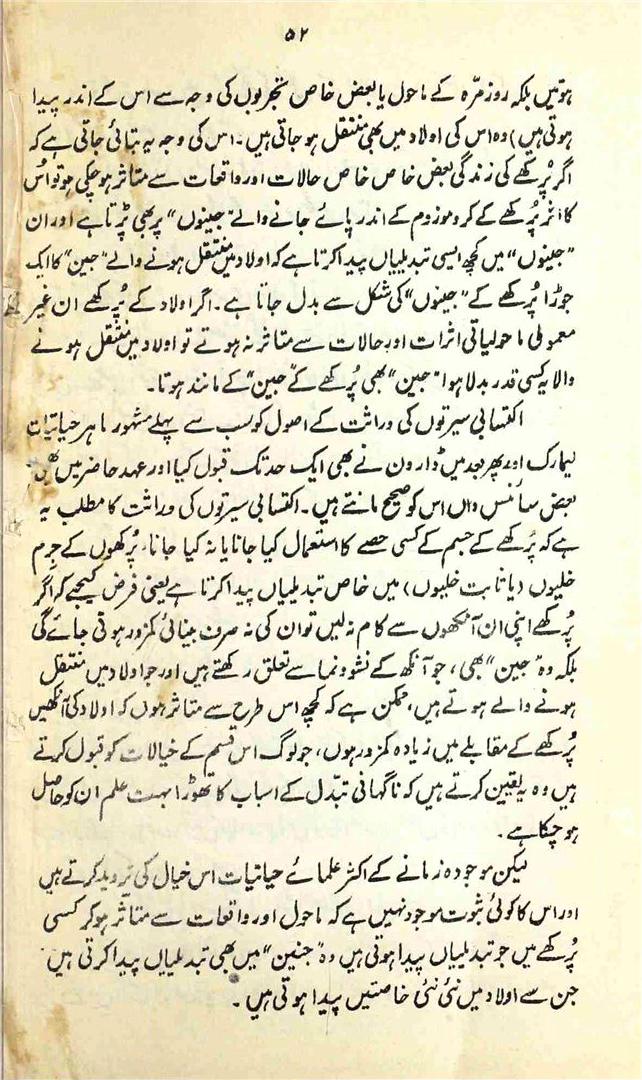 ۵۲
ہوتیں بلکہ روزمرّہ کے ماحول یا بعض خاص تجربوں کی وجہ سے اس کے اندر پیدا
ہوتی ہیں) وہ اس کی اولاد میں بھی منتقل ہو جاتی ہیں۔ اس کی وجہ یہ بتائی جاتی ہے کہ
اگر پُرکھے کی زندگی بعض خاص خاص حالات اور واقعات سے متاثر ہو چکی ہو تو اُس
کا اثر پُرکھے کے کروموزوم کے اندر پائے جانے والے "جینوں" پر بھی پڑتا ہے اور ان
"جینوں" میں کچھ ایسی تبدیلیاں پیدا کرتا ہے کہ اولاد میں منتقل ہونے والے "جین" کا ایک
جوڑا پُرکھے کے "جینوں" کی شکل سے بدل جاتا ہے۔ اگر اولاد کے پُرکھے ان غیر
معمولی ماحولیاتی اثرات اور حالات سے متاثر نہ ہوتے تو اولاد میں منتقل ہونے
والا یہ کسی قدر بدلا ہوا "جین" بھی پُرکھے کے "جین" کے مانند ہوتا۔
اکتسابی سیرتوں کی وراثت کے اصول کو سب سے پہلے مشہور ماہر حیاتیات
لیمارک اور پھر بعد میں ڈارون نے بھی ایک حد تک قبول کیا اور عہد حاضر میں بھی
بعض سائنس داں اس کو صحیح مانتے ہیں۔ اکتسابی سیرتوں کی وراثت کا مطلب یہ
ہے کہ پُرکھے کے جسم کے کسی حصے کا استعمال کیا جانا یا نہ کیا جانا، پُرکھوں کے جرم
خلیوں (یا ثابت خلیوں) میں خاص تبدیلیاں پیدا کرتا ہے یعنی فرض کیجیے کہ اگر
پُرکھے اپنی ان آنکھوں سے کام نہ لیں تو ان کی نہ صرف بینائی کمزور ہوتی جائے گی
بلکہ وہ "جین" بھی، جو آنکھ کے نشوونما سے تعلق رکھتے ہیں اور جو اولاد میں منتقل
ہونے والے ہوتے ہیں، ممکن ہے کہ کچھ اس طرح سے متاثر ہوں کہ اولاد کی آنکھیں
پُرکھے کے مقابلے میں زیادہ کمزور ہوں، جو لوگ اس قسم کے خیالات کو قبول کرتے
ہیں وہ یہ یقین کرتے ہیں کہ ناگہانی تبدّل کے اسباب کا تھوڑا بہت علم ان کو حاصل
ہو چکا ہے۔
لیکن موجودہ زمانے کے اکثر علمائے حیاتیات اس خیال کی تردید کرتے ہیں
اور اس کا کوئی ثبوت موجود نہیں ہے کہ ماحول اور واقعات سے متاثر ہو کر کسی
پُرکھے میں جو تبدیلیاں پیدا ہوتی ہیں وہ "جنین" میں بھی تبدیلیاں پیدا کرتی ہیں
جن سے اولاد میں نئی نئی خاصتیں پیدا ہوتی ہیں۔